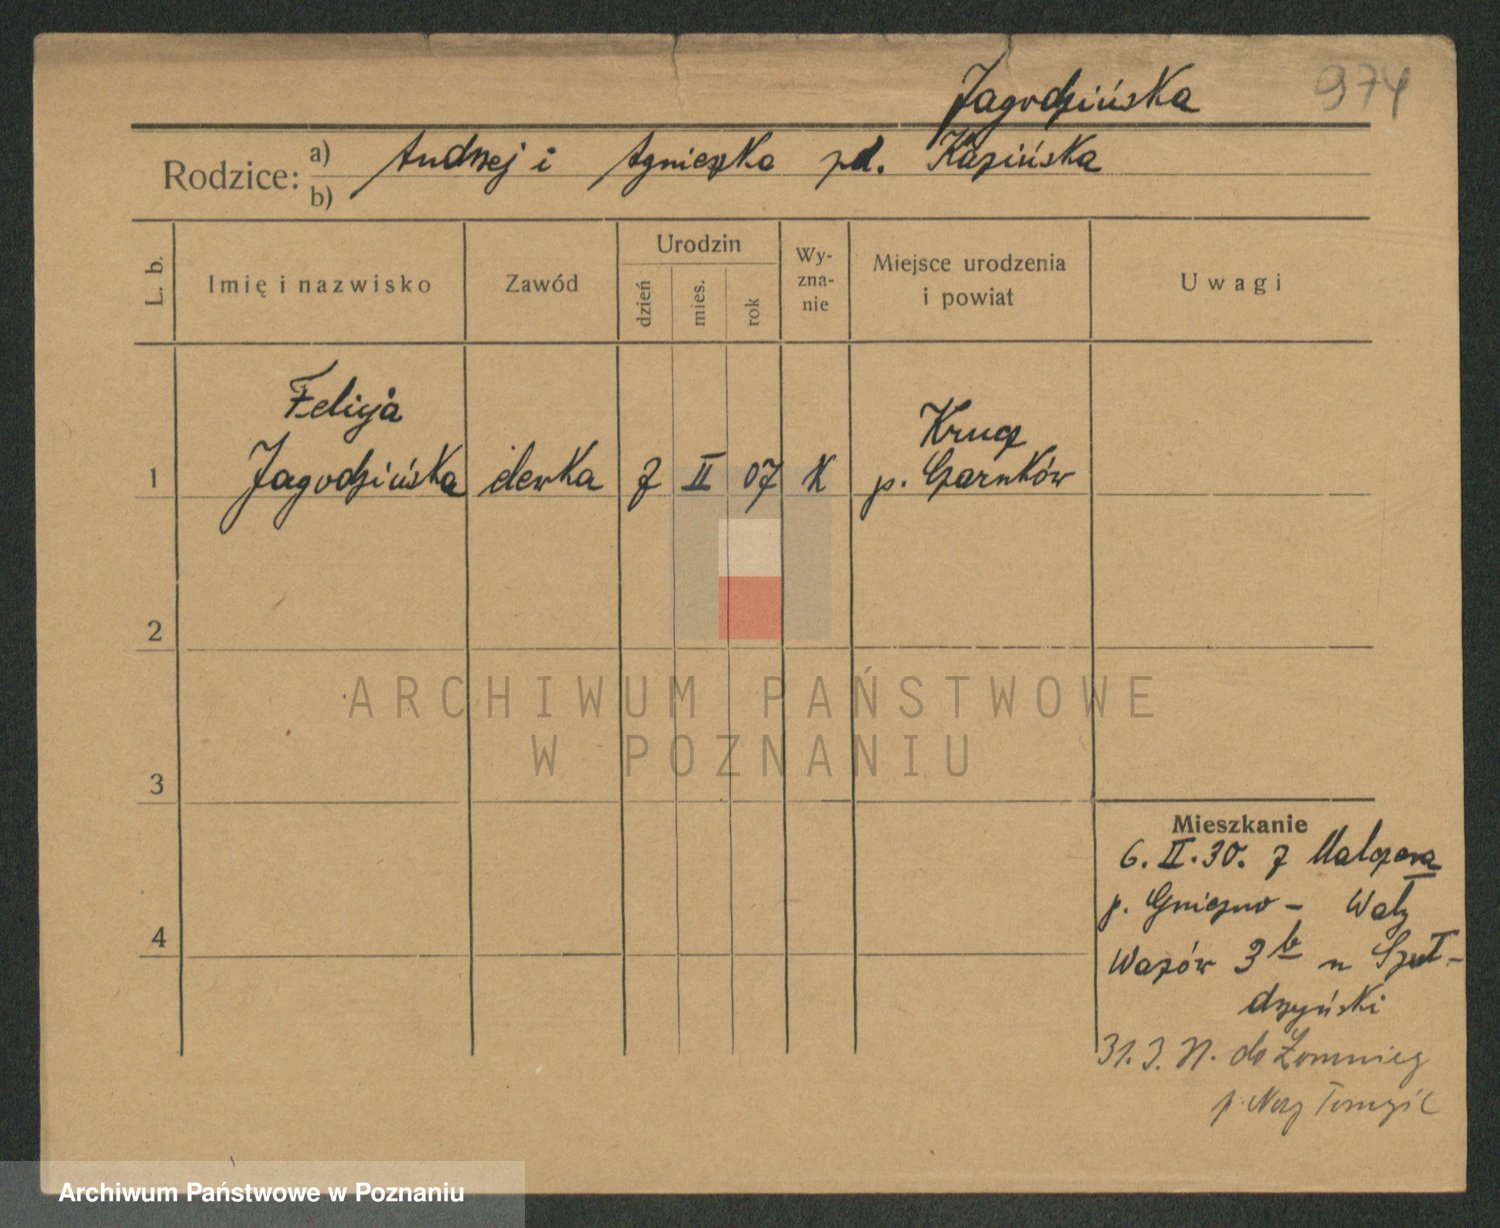 Jagodzińska 974
Rodzice: a) Andrzej i Agnieszka zd. Kazińska
b)
L. b. Imię i nazwisko Zawód Urodzin dzień mies. rok Wy-zna-nie Miejsce urodzenia i powiat Uwagi
Felicja
Krucz
1 Jagodzińska elewka 7 II 07 K p. Czarnków
2
ARCHIWUM PAŃSTWOWE
W POZNANIU
3
Mieszkanie
6. II. 30. z
p. Gniezno - Wały
4
Wazów 3 b u Szoł-
drzyński
31. 3. do Łomnicy
p. Nowy Tomyśl
Archiwum Państwowe w Poznaniu